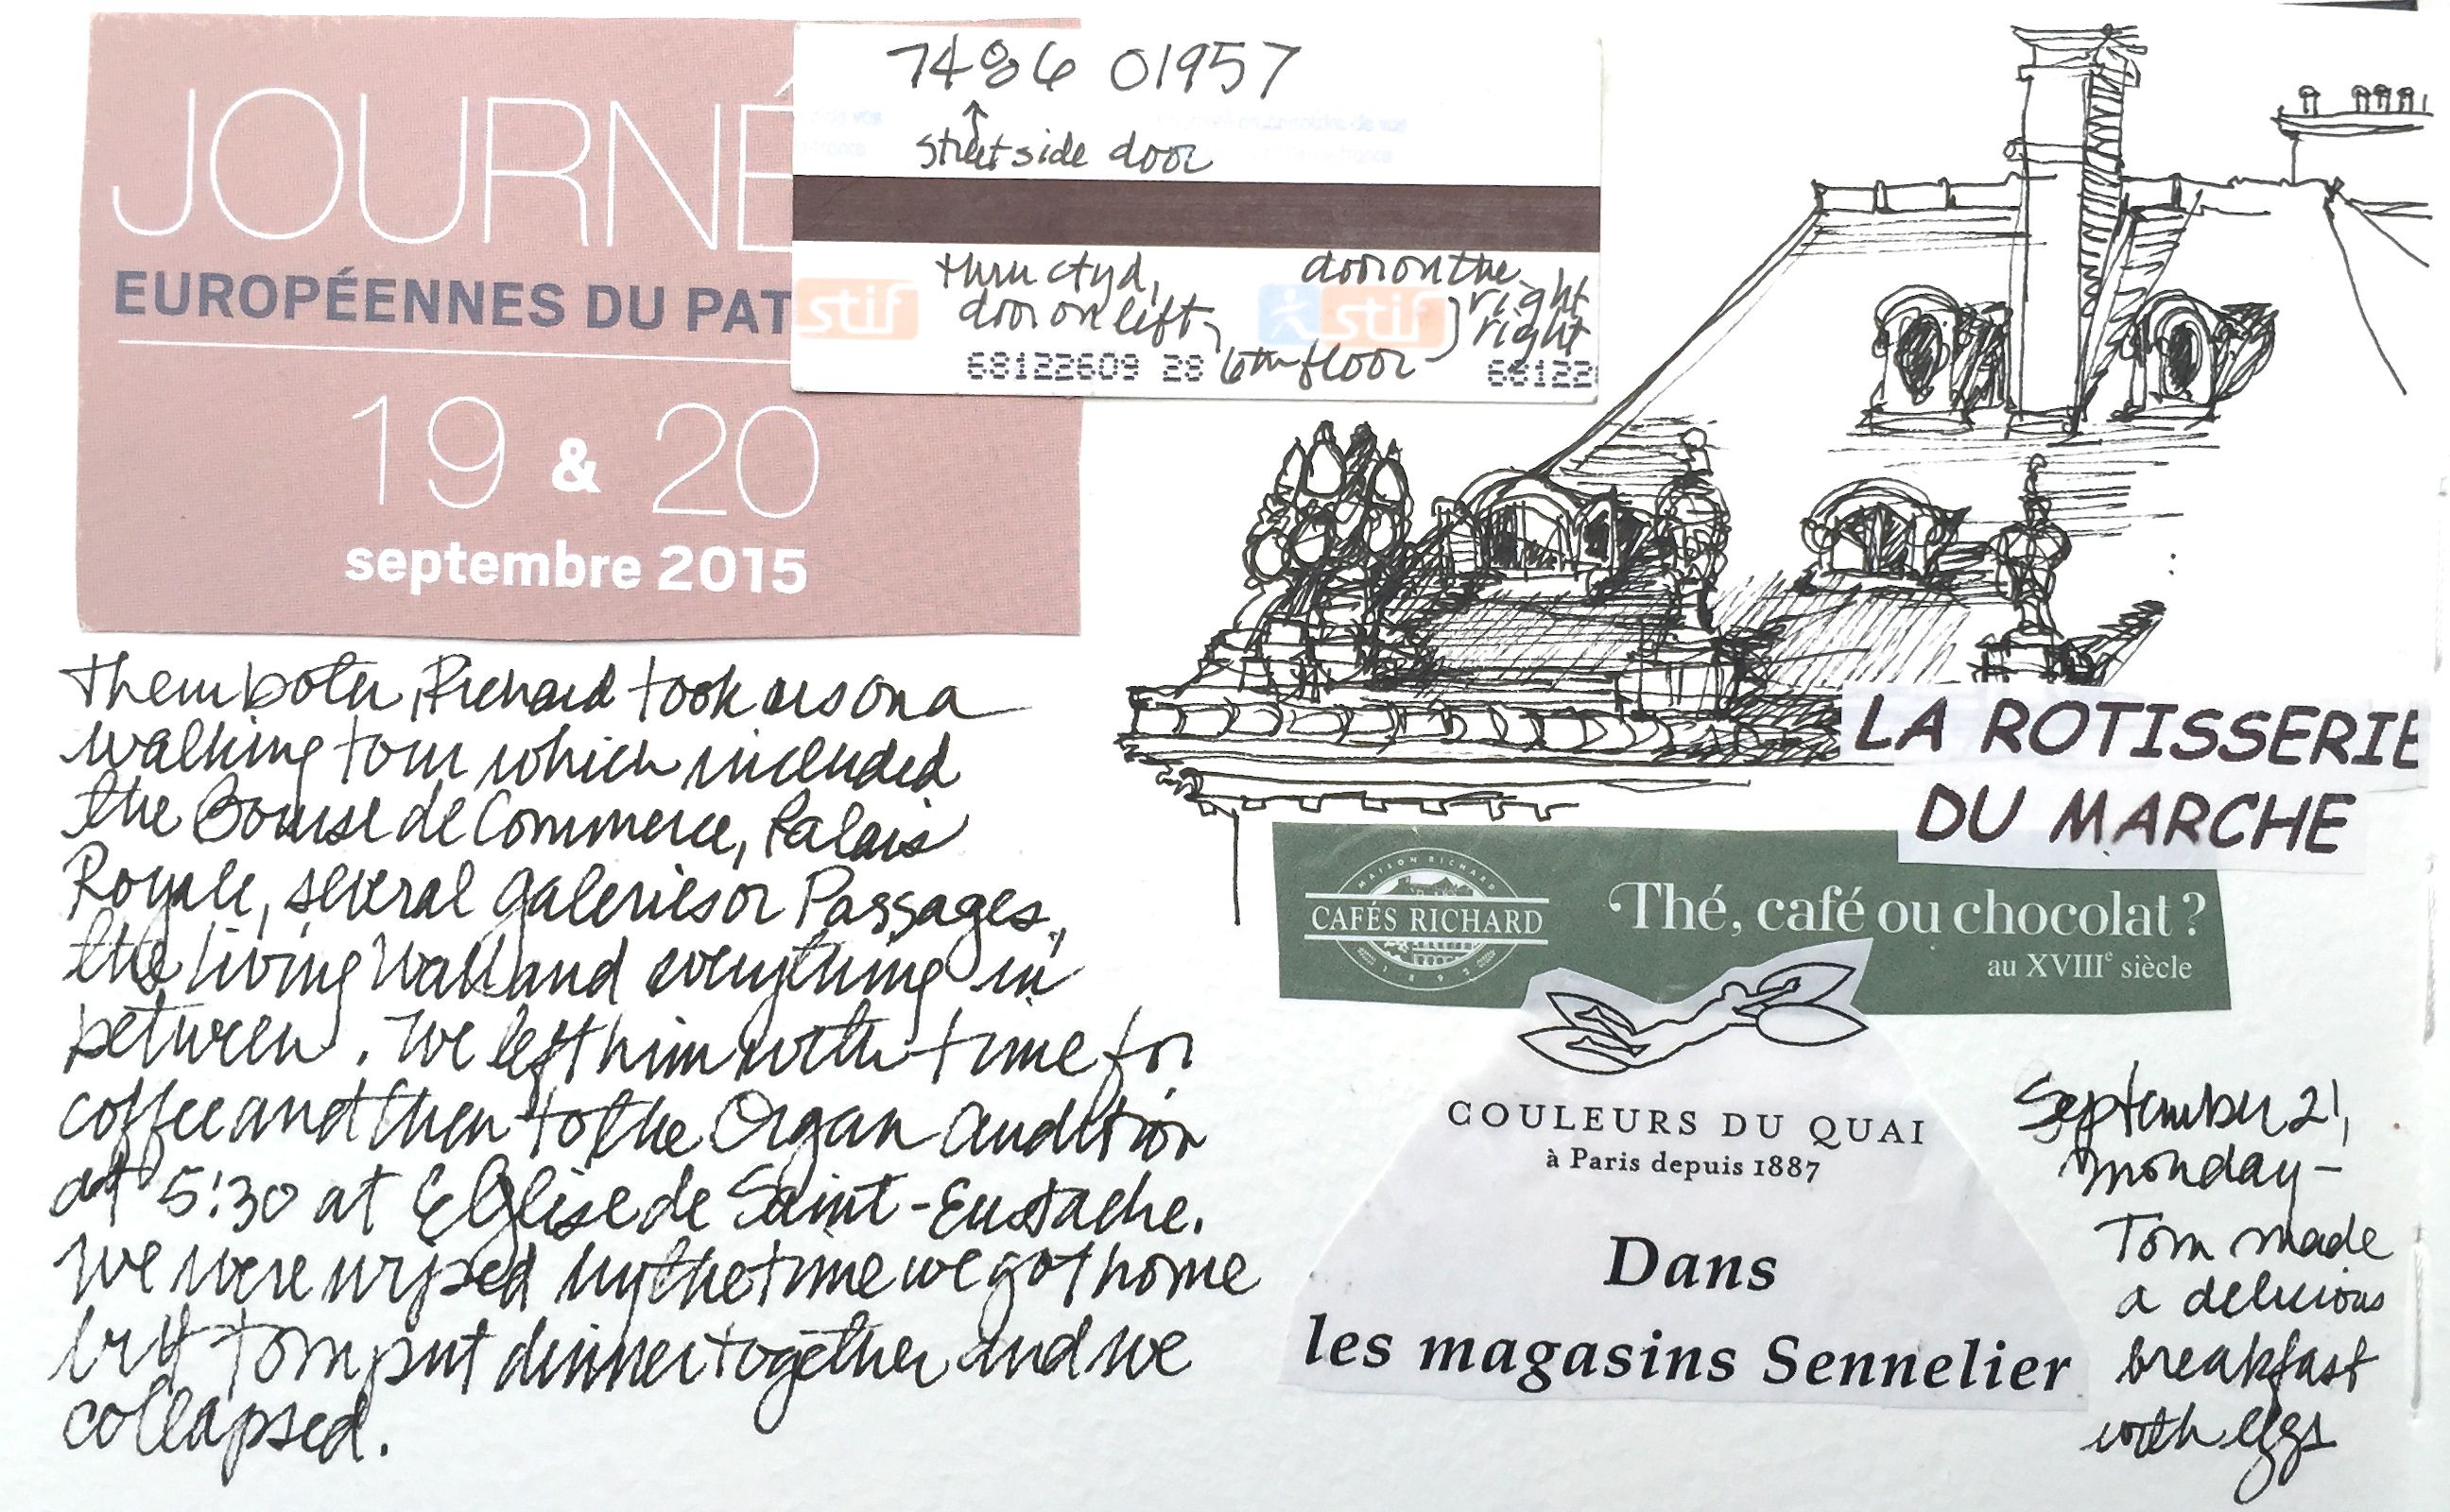 JOURNÉ
EUROPÉENNES DU PAT
19 & 20
septembre 2015
7486 01957
↑
streetside door
thru ctyd,
door on left,
6th floor
door on the
right
right
stif
stif
68122609 28
68122
them both, Richard took us on a
walking tour which included
the Bourse de Commerce, Palais
Royale, several galeries or Passages,
the living Wall and everything in
between. We left him with time for
coffee and then to the Organ Audition
at 5:30 at Eglise de Saint-Eustache.
We were wiped by the time we got home
but Tom put dinner together and we
collapsed.
LA ROTISSERIE
DU MARCHE
MAISON RICHARD
CAFÉS RICHARD
1892
Thé, café ou chocolat ?
au XVIIIe siècle
COULEURS DU QUAI
à Paris depuis 1887
Dans
les magasins Sennelier
September 21,
Monday –
Tom made
a delicious
breakfast
with eggs